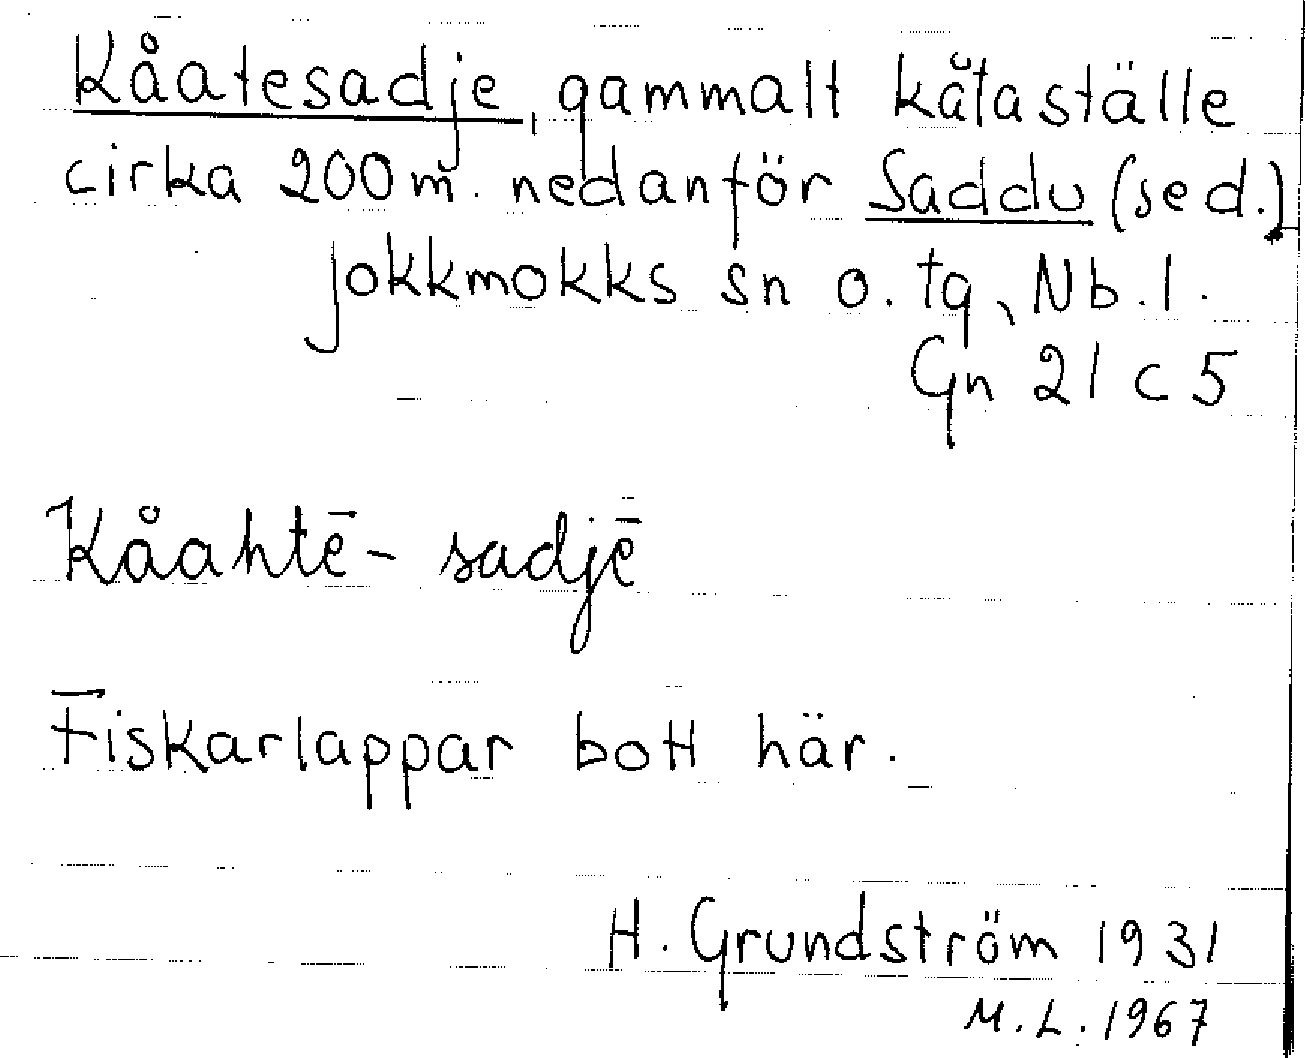 Kåatesadje, gammalt kåtaställe
cirka 200 m. nedanför Saddu (se d.)
Jokkmokks sn o. tg, Nb. l.
Gn 21 c 5
Kåahtē-sadjē
Fiskarlappar bott här.
H. Grundström 1931
M. L. 1967